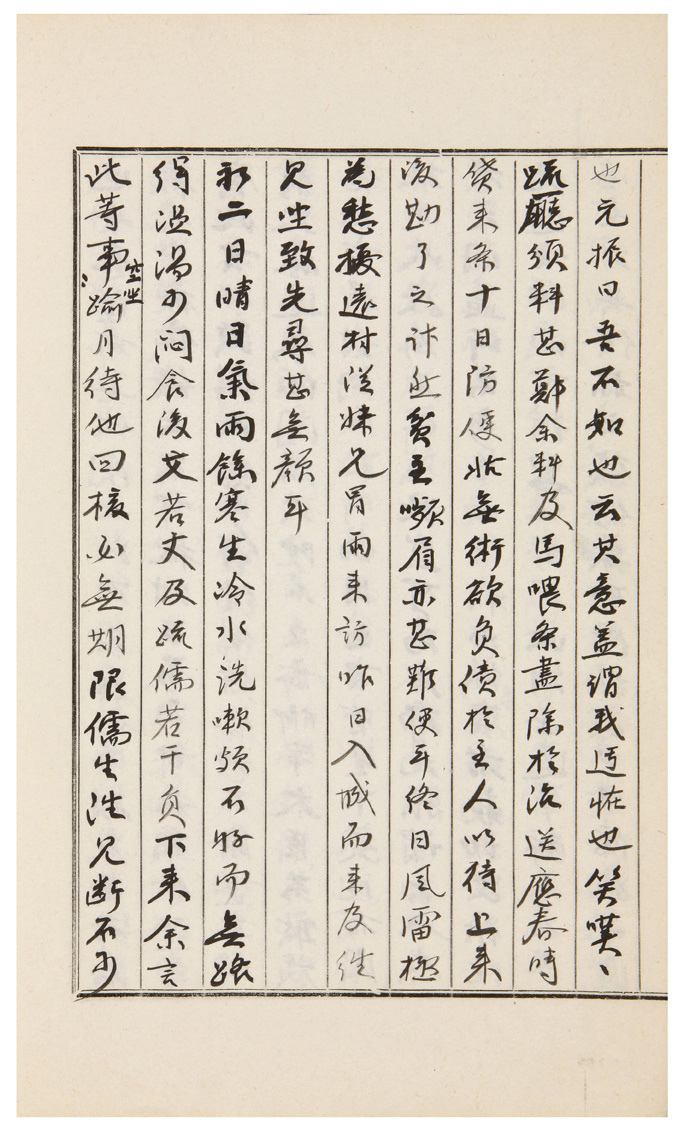 也元振曰吾不知也云其意盖謂我迂怪也笑嘆〻
疏廳頒料甚鄭余料及馬喂条盡除於治送應春時
貸来条十日防便状無術欲負債於主人以待上来
後勘了之計然貧主嚬眉亦甚難便耳終日風雷極
為愁擾遠村従妹兄冒雨来訪昨日入城而来及徃
見坐致先尋甚無顔耳
初二日晴日氣雨餘寒生冷水洗嗽頗不好而無路
得温湯可悶食後艾若丈及疏儒若干負下来余言
此等事空坐踰月待他回核必無期限儒生洪兄断不可